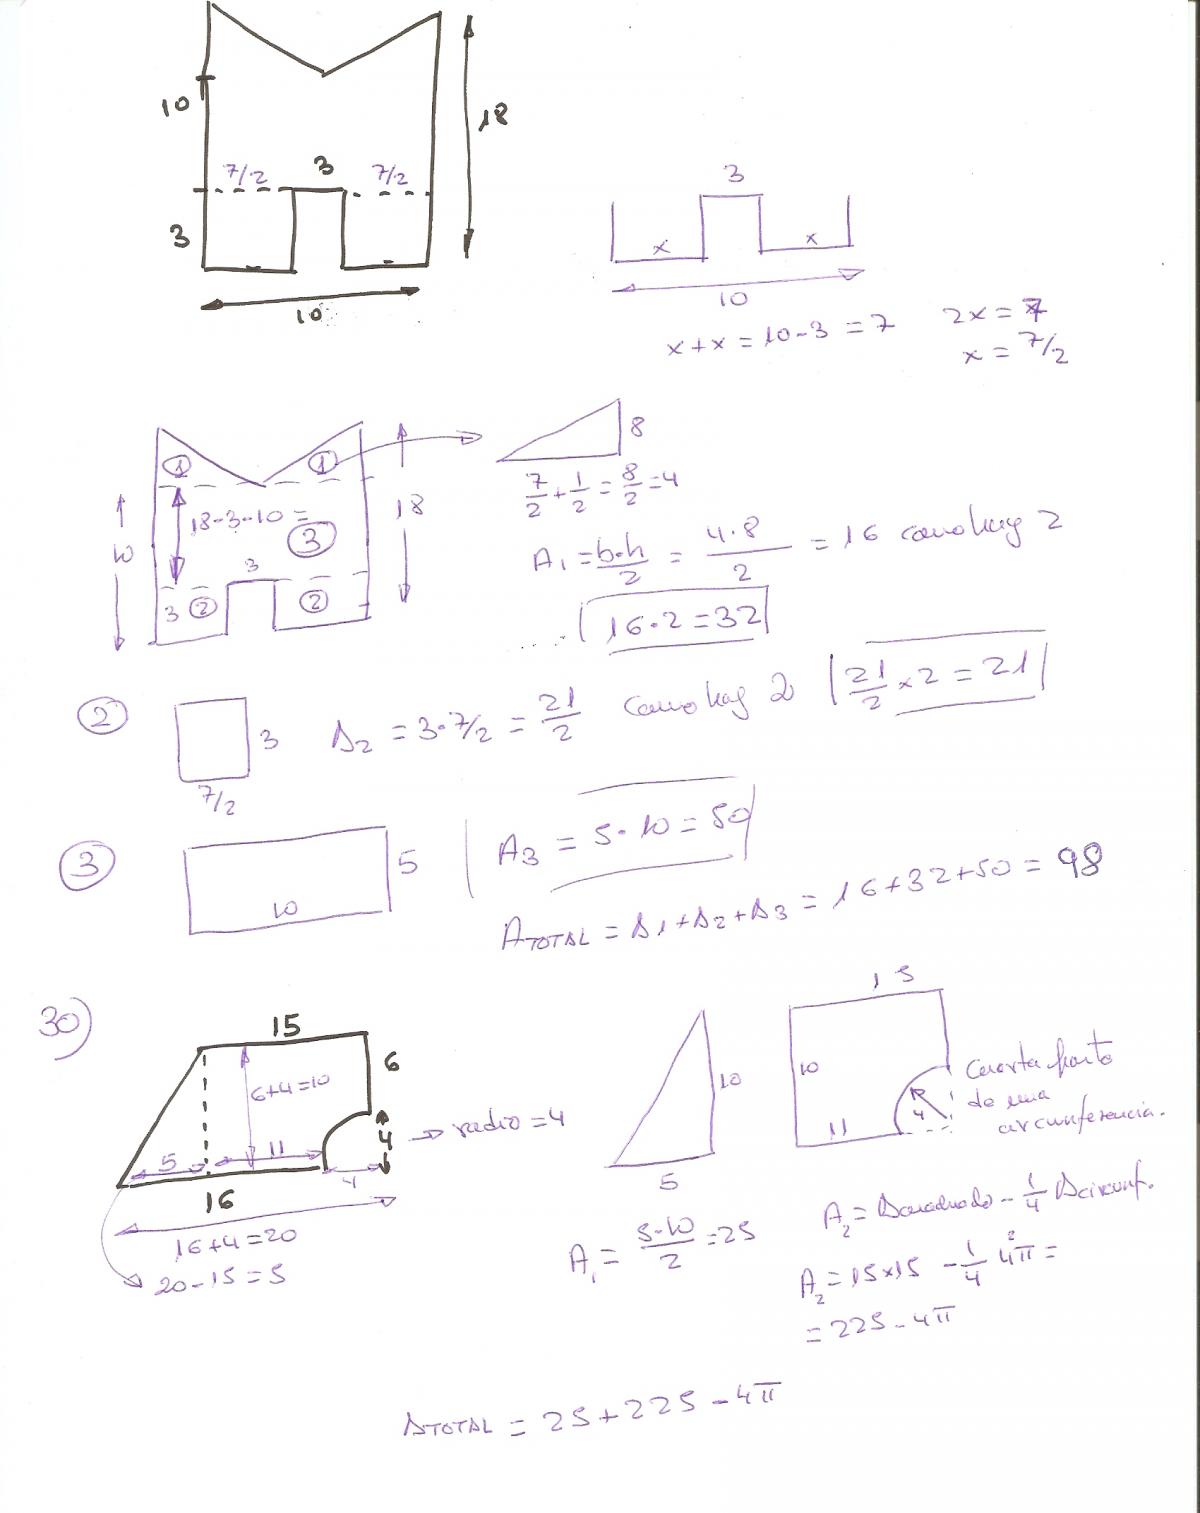 10
18
7/2 3 7/2
3
10
3
x x
10
x+x=10-3=7 2x=7
x=7/2
1 1
8
7/2+1/2=8/2=4
18-3-10=
18
10
3
3
3 2 2
A1=b·h/2 = 4·8/2 = 16 como hay 2
16·2=32
2
3
7/2
A2 = 3·7/2 = 21/2 como hay 2 21/2 x 2 = 21
3
5
10
A3 = 5·10=50
ATOTAL = A1+A2+A3 = 16+32+50 = 98
30)
15
6
6+4=10
4 → radio=4
5 11
4
16
16+4=20
20-15=5
10
5
A1= 5·10/2 =25
15
10
4
11
Cuarta parte
de una
circunferencia.
A2= Acuadrado - 1/4 Acircunf.
A2=15x15 - 1/4 4²π =
= 225-4π
ATOTAL = 25+225-4π